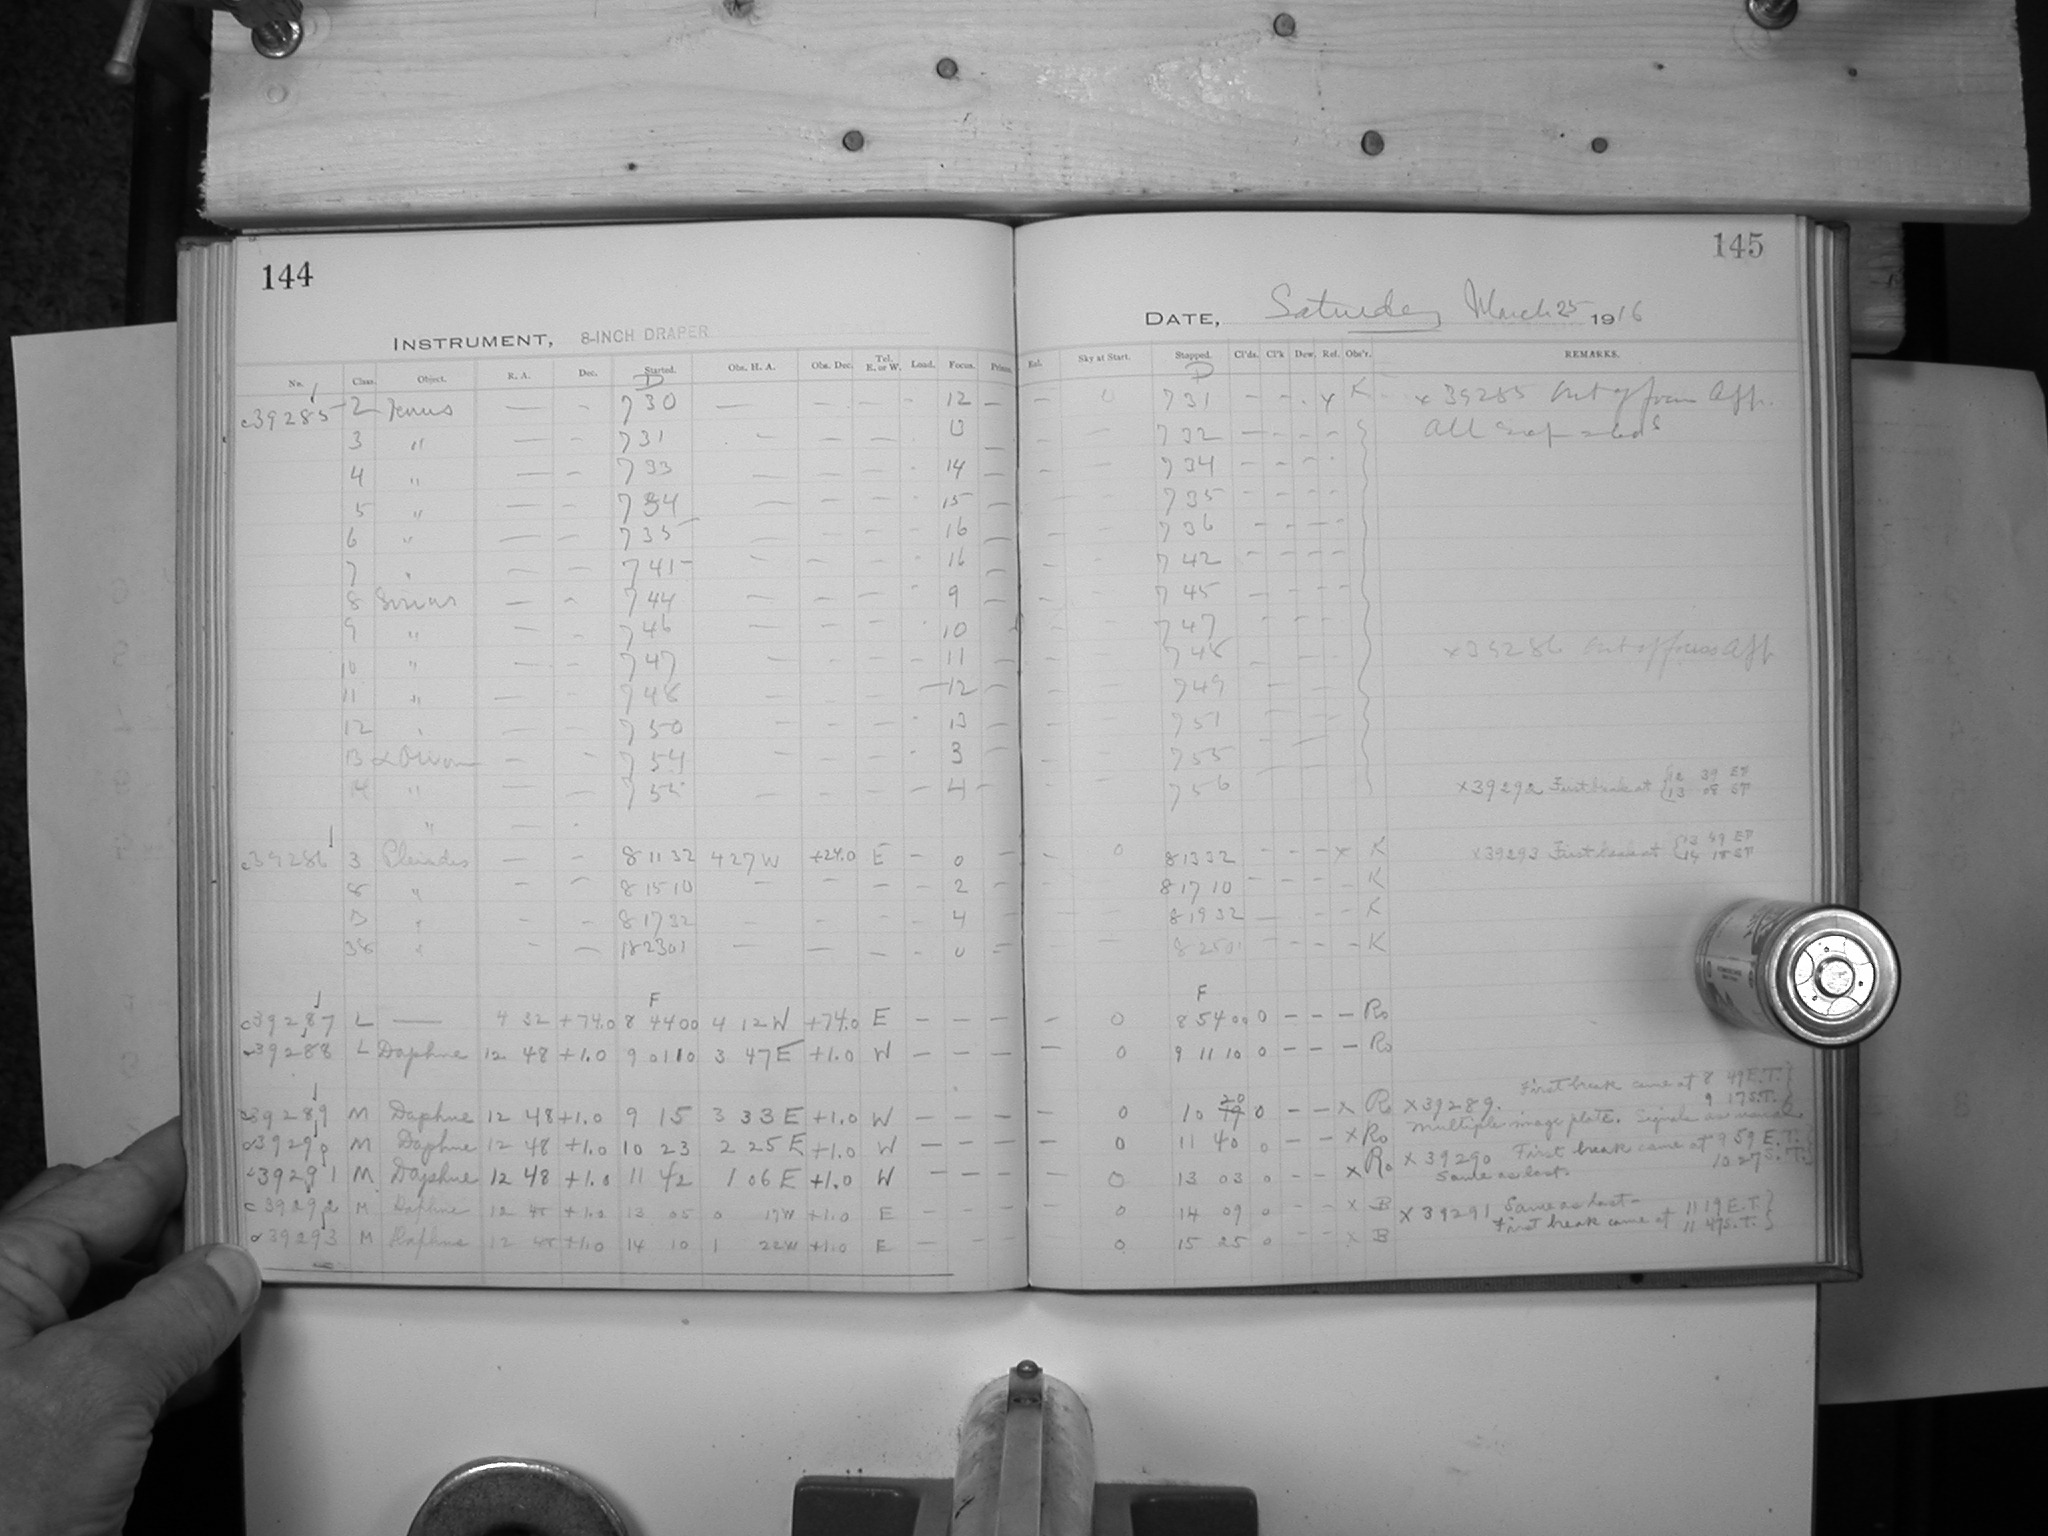 144
INSTRUMENT, 8-INCH DRAPER
No. Class. Object. R. A. Dec. Started. Obs. H. A. Obs. Dec. Tel. E. or W. Load. Focus. Prisms.
D
c39285 2 Venus — - 7 30 — — — - 12 —
3 " — - 7 31 - — — —
4 " — - 7 33 — — — - 14 —
5 " — - 7 34 — — — - 15 —
6 " — — 7 35 — — — - 16 —
7 " — — 7 41 — — — - 16 —
8 Sirius — - 7 44 — — — - 9 —
9 " — - 7 46 — — — - 10 -
10 " — - 7 47 — — — - 11 —
11 " — - 7 48 — — — — 12 —
12 " — - 7 50 — — — - 13 —
13 — - 7 54 — — — - 3 —
14 " — — 7 55 — — — — 4 —
" — -
c39286 3 Pleiades — — 8 11 32 4 27 W +24.0 E - 0 —
8 " — — 8 15 10 — — — - 2 —
13 " — - 8 17 32 — — — - 4 —
38 " - — 8 23 01 — — — - 0 —
F
c39287 L —— 4 32 +74.0 8 44 00 4 12 W +74.0 E — — — —
c39288 L Daphne 12 48 +1.0 9 01 10 3 47 E +1.0 W — — — —
c39289 M Daphne 12 48 +1.0 9 15 3 33 E +1.0 W — — — —
c39290 M Daphne 12 48 +1.0 10 23 2 25 E +1.0 W — — — —
c39291 M Daphne 12 48 +1.0 11 42 1 06 E +1.0 W — — — —
c39292 M Daphne 12 48 +1.0 13 05 0 17 W +1.0 E — — — —
c39293 M Daphne 12 48 +1.0 14 10 1 22 W +1.0 E — — — —
145
DATE, Saturday March 25 1916
Exl. Sky at Start. Stopped. Cl'ds. Cl'k Dew. Ref. Obs'r. REMARKS.
D
0 7 31 - - - x K x 39285 Out of focus App.
7 32 — - - - All
7 34 - - - -
7 35 - - - -
7 36 - - - -
7 42 - - - -
7 45 - - - -
7 47 - - - -
7 48 - - - x39286 Out of focus App
7 49 - - -
7 51 - - -
7 55 - - -
7 56 x39292 First break at {12 39 ET
13 08 ST
0 8 13 32 - - - x K x39293 First break at {13 49 ET
14 18 ST
8 17 10 - - - - K
8 19 32 — - - - K
8 25 01 - - - - K
F
0 8 54 00 0 - - - Ro
0 9 11 10 0 - - - Ro
First break came at 8 49 E.T.}
9 17 S.T.}
0 10 20 0 - - x Ro x 39289.
Multiple image plate. Signals as usual
0 11 40 0 - - x Ro x 39290 First break came at 9 59 E.T.}
10 27 S.T.}
0 13 03 0 - - x Ro Same as last.
0 14 09 0 - - x B x 39291 Same as last-
First break came at 11 19 E.T.}
11 47 S.T.}
0 15 25 0 - - x B